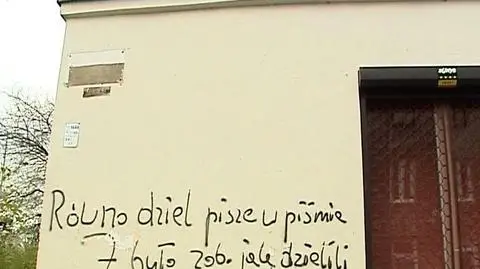 Równo dziel pisze w piśmie
7 było zob. jak dzielili